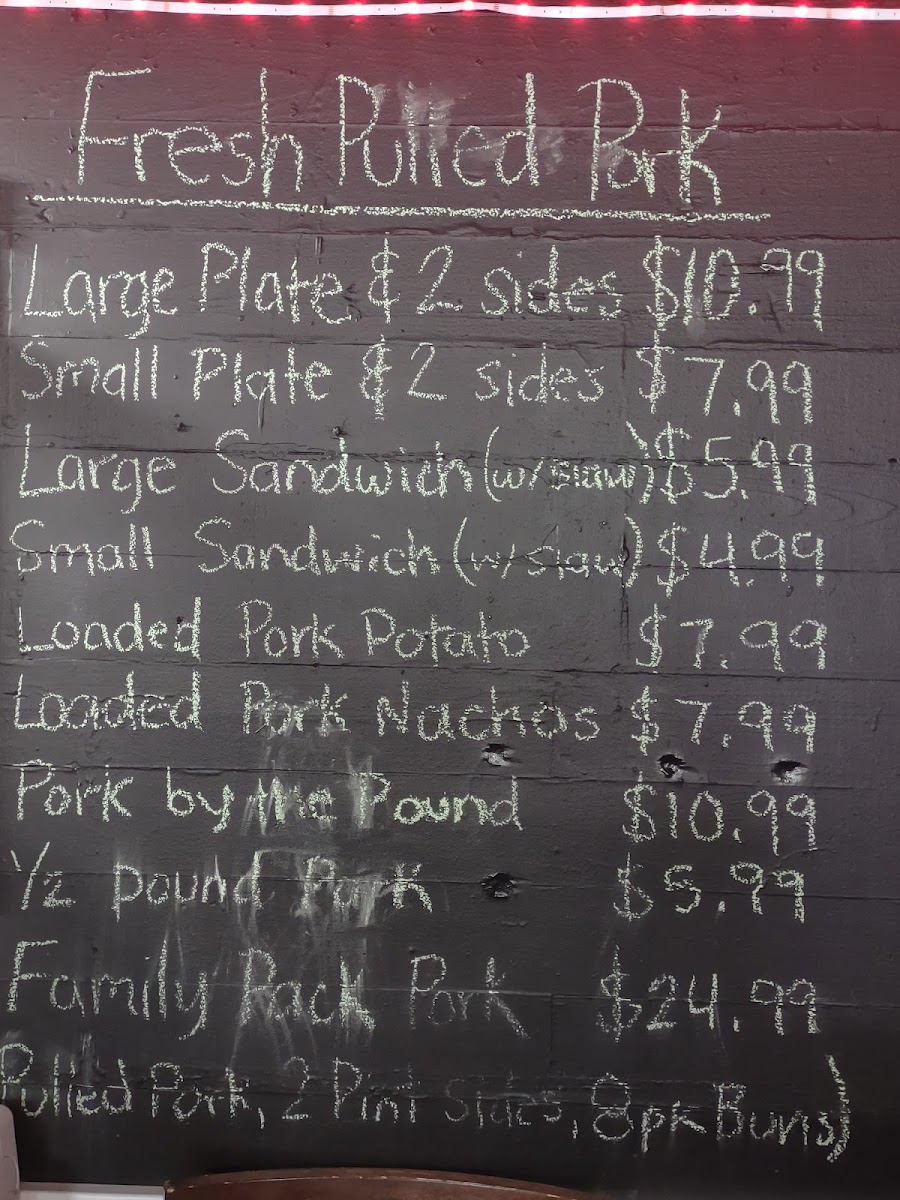 Fresh Pulled Pork
Large Plate & 2 sides $10.99
Small Plate & 2 sides $7.99
Large Sandwich (w/slaw) $5.99
Small Sandwich (w/slaw) $4.99
Loaded Pork Potato $7.99
Loaded Pork Nachos $7.99
Pork by the Pound $10.99
1/2 pound Pork $5.99
Family Pack Pork $24.99
Pulled Pork, 2 Pint Sides, 8pk Buns)